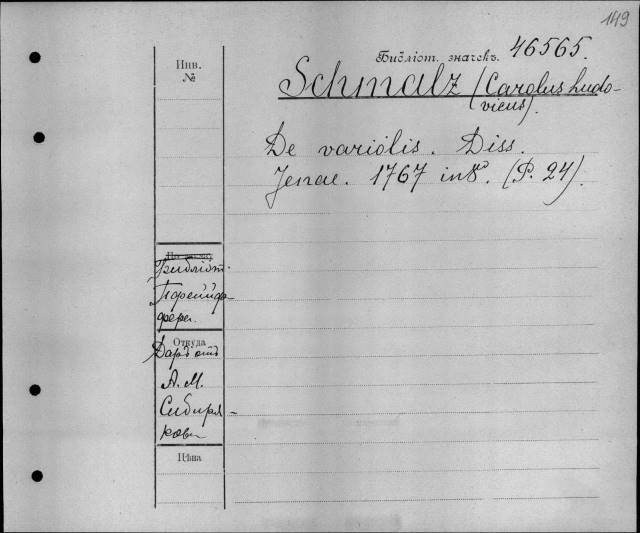 149
Инв.
№
Библіот. значекъ. 46565.
Schmalz (Carolus Ludo-
vicus).
De variolis. Diss.
Jenae. 1767 in 8°. (P. 24).
Библіот.
Пфейф-
фера.
Откуда
Даръ отъ
А. М.
Сибиря-
кова
Цѣна